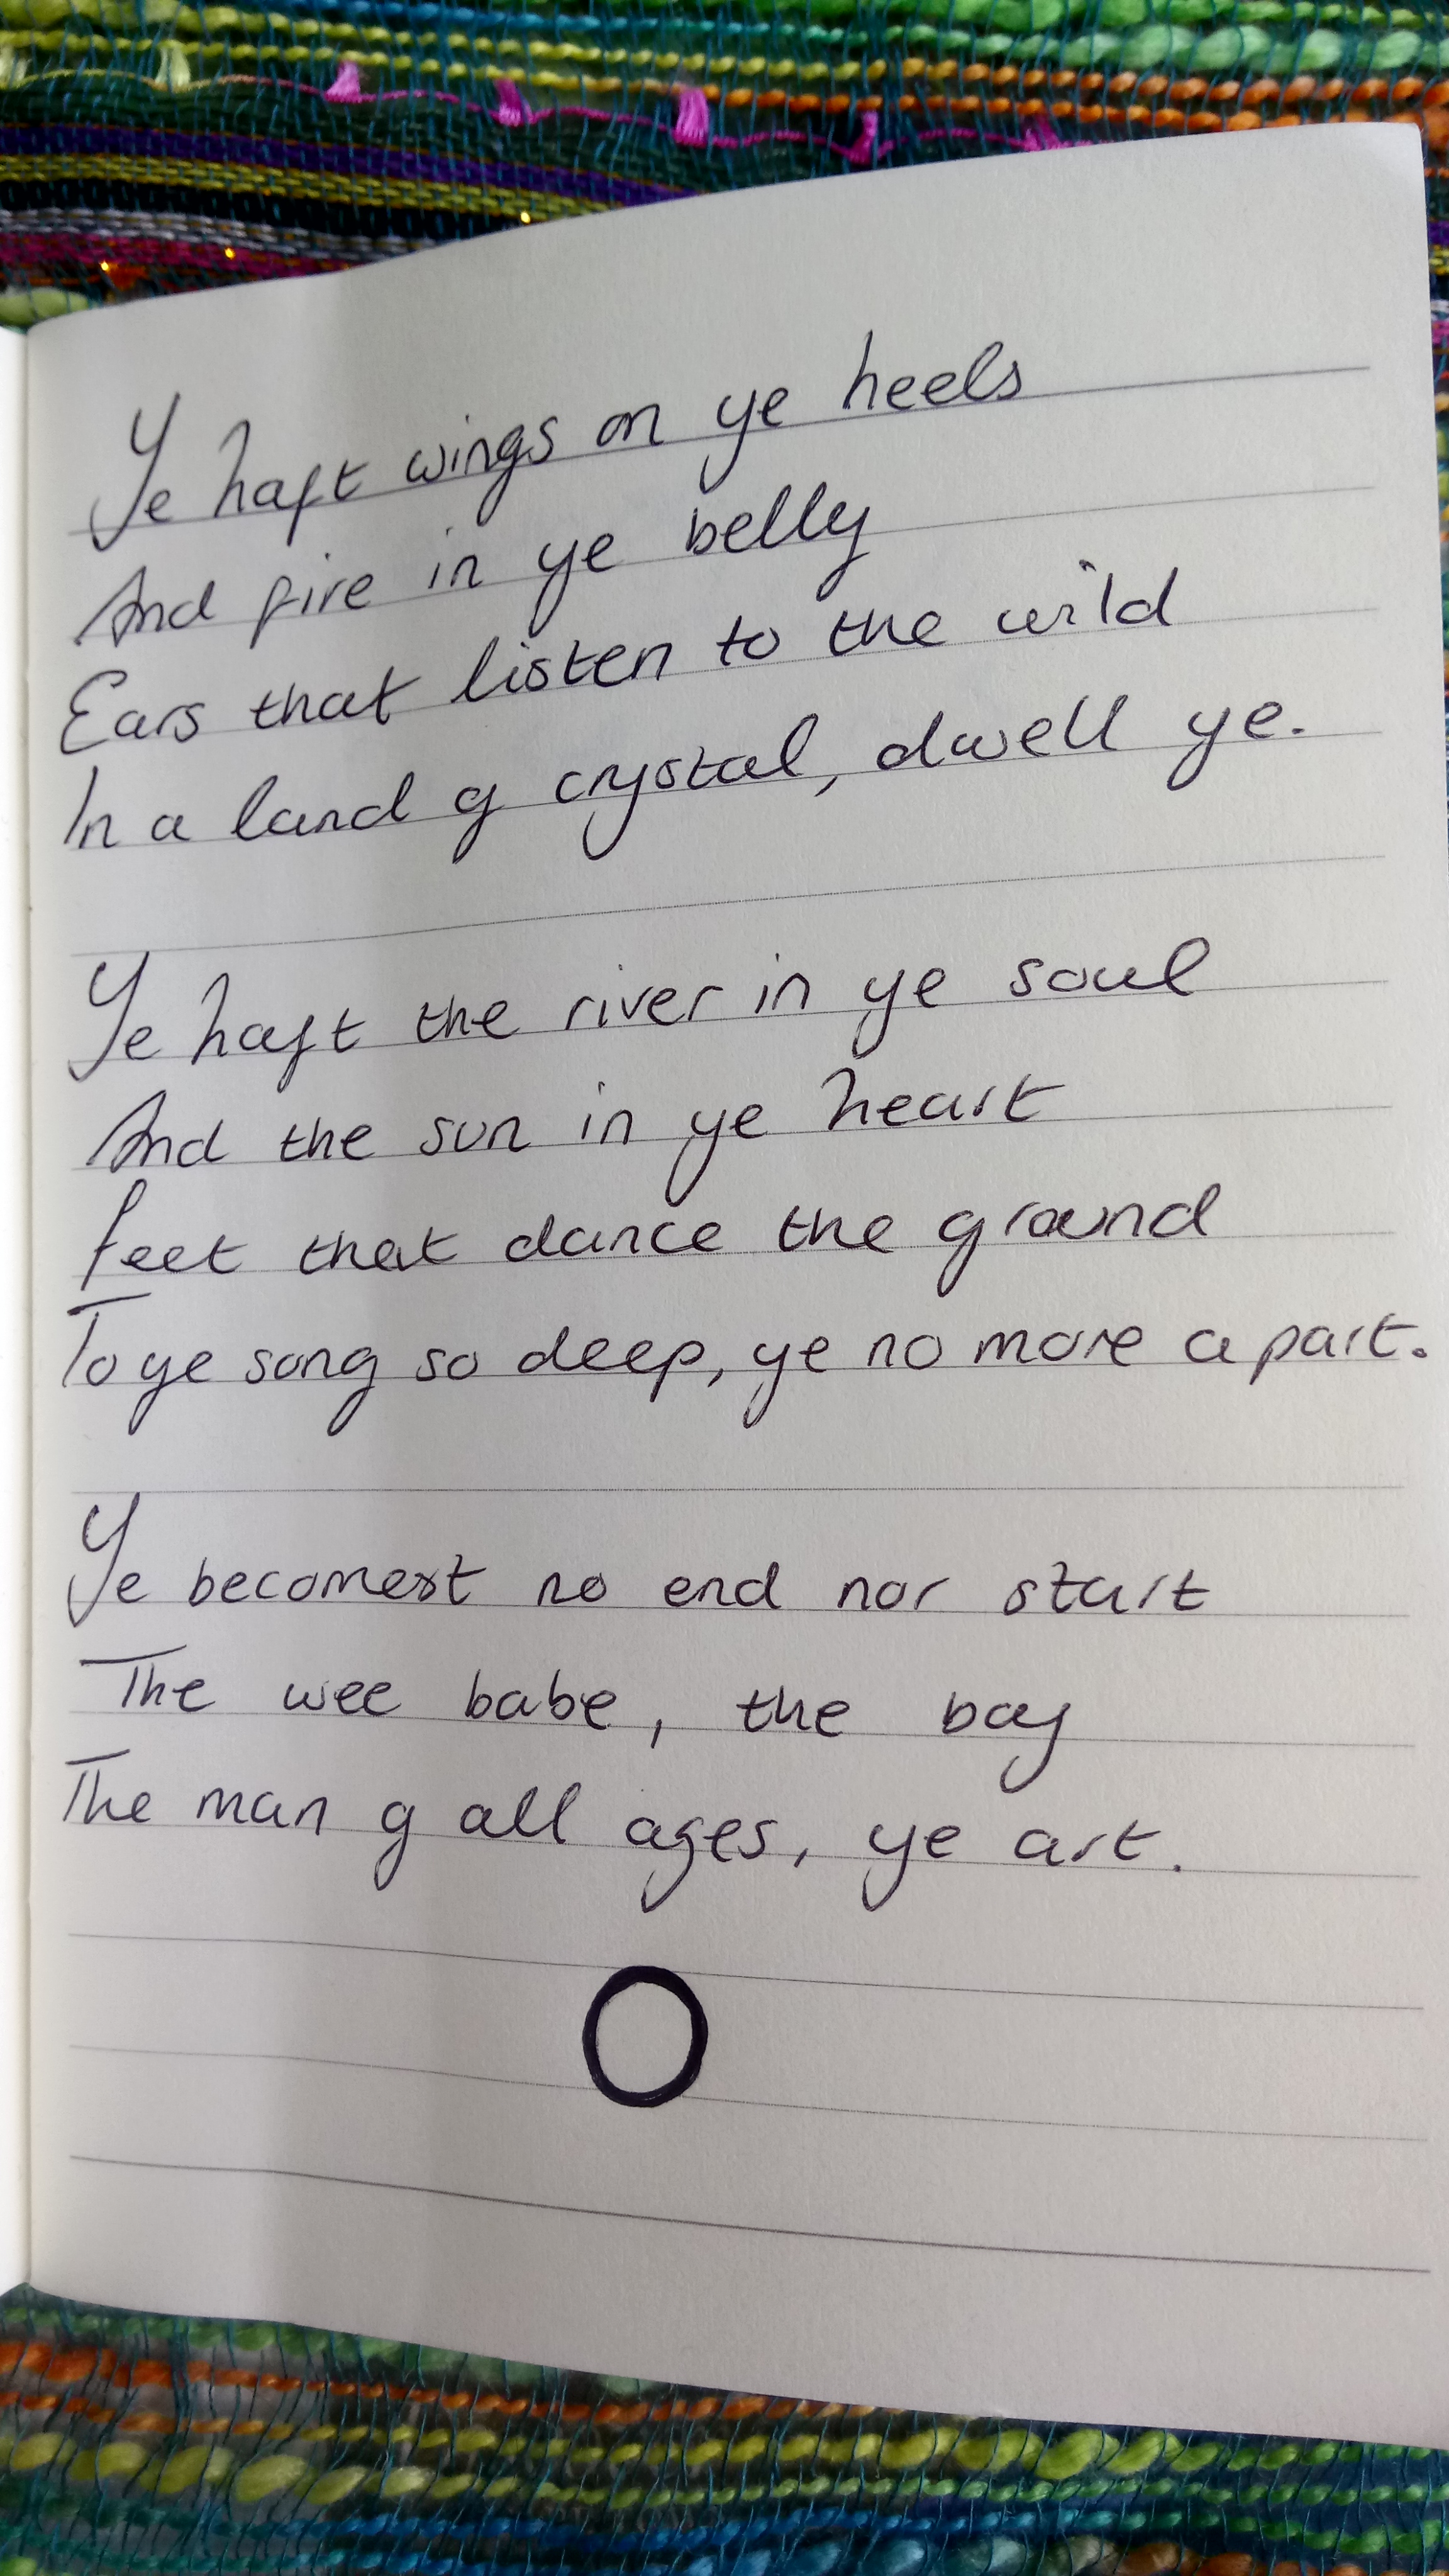 Ye haft wings on ye heels
And fire in ye belly
Ears that listen to the wild
In a land of crystal, dwell ye.
Ye haft the river in ye soul
And the sun in ye heart
Feet that dance the ground
To ye song so deep, ye no more apart.
Ye becomest no end nor start
The wee babe, the boy
The man of all ages, ye art.